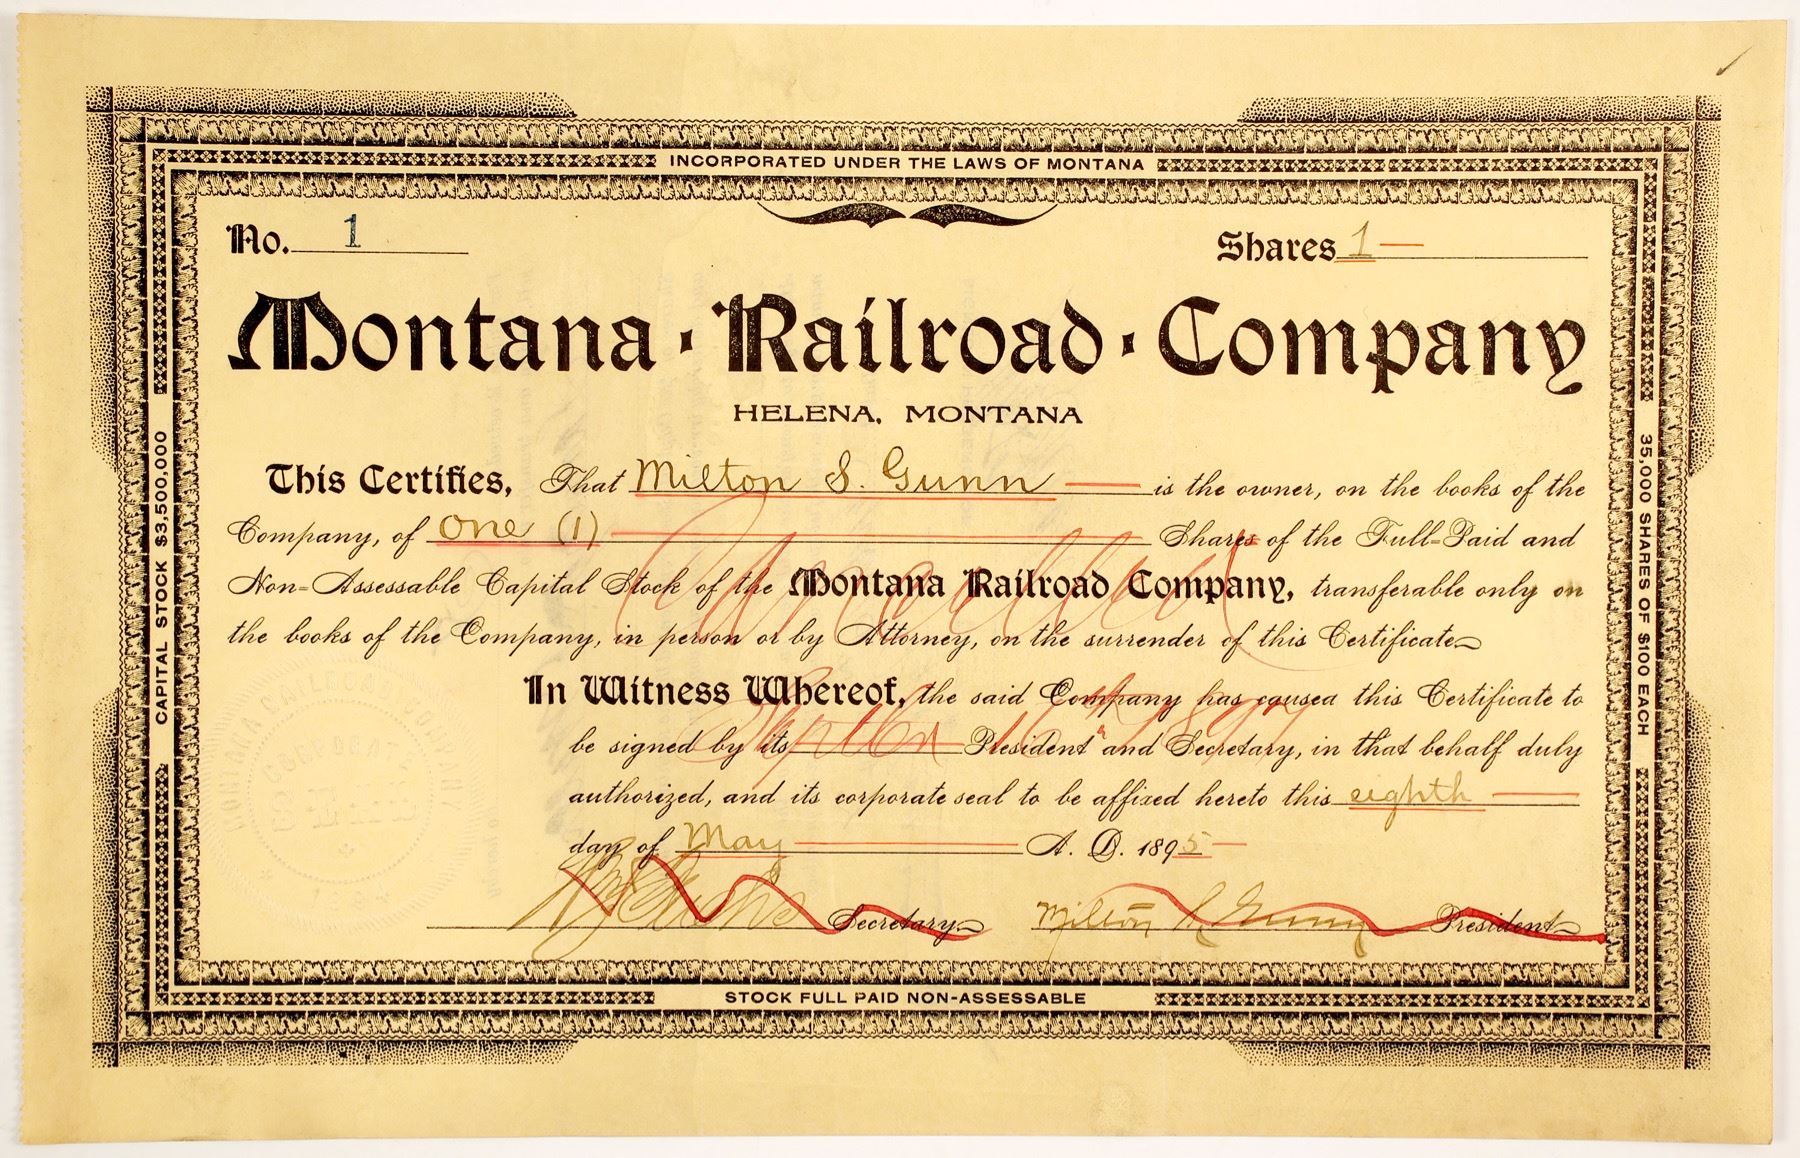 INCORPORATED UNDER THE LAWS OF MONTANA
No. 1
Shares 1
Montana · Railroad · Company
HELENA, MONTANA
This Certifies, That Milton S. Gunn is the owner, on the books of the
Company, of One (1) Shares of the Full-Paid and
Non-Assessable Capital Stock of the Montana Railroad Company, transferable only on
the books of the Company, in person or by Attorney, on the surrender of this Certificate
Cancelled
In Witness Whereof, the said Company has caused this Certificate to
be signed by its President and Secretary, in that behalf duly
authorized, and its corporate seal to be affixed hereto this eighth
day of May A. D. 1895
Secretary
Milton S. Gunn President
CAPITAL STOCK $3,500,000
35,000 SHARES OF $100 EACH
STOCK FULL PAID NON-ASSESSABLE